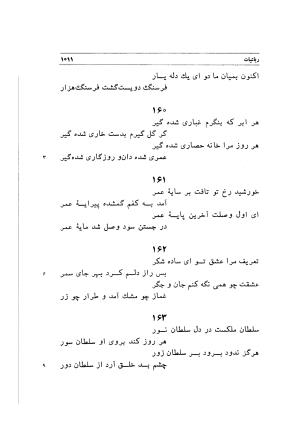 رباعیات ۱۰۱۱
اکنون بمیان ما دو ای یك دله یــار
فرسنگ دویست‌گشت فرسنگ‌هزار
۱۶۰
هر ابر که بنگرم غباری شده گیر
گر گل گیرم بدست خاری شده گیر
هر روز مرا خانه حصاری شده گیر
عمری شده دان‌و روزگاری شده‌گیر ۳
۱۶۱
خورشید رخ تو تافت بر سایهٔ عمر
آمد بـه کفم گمشده پیرایـهٔ عمر
ای اول وصلت آخرین پایـهٔ عمر
در جستن سود وصل شد مایهٔ عمر
۱۶۲
تعریف مرا عشق تـو ای ساده شکر
بس راز دلـم کـرد بـهر جای سمر ۶
عشقت چو همی نگه کنم جان و جگر
غماز چو مشك آمد و طرار چو زر
۱۶۳
سلطان ملکست در دل سلطان نـور
هر روز کند بروی او سلطان سور
هرگز ندود بـرود بـر سلطان زور
چشم بـد خلـق آرد از سلطان دور ۹